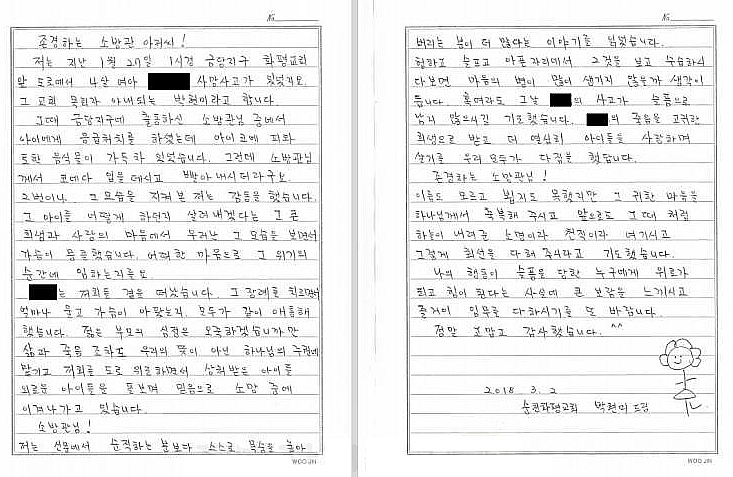 No.
존경하는 소방관 아저씨!
저는 지난 1월 20일 1시경 금당지구 화평교회
앞 도로에서 4살 여아 사망사고가 있었지요.
그 교회 목회자 아내되는 박현미라고 합니다.
그때 금당지구에 출동하신 소방관님 중에서
아이에게 응급처치를 하셨는데 아이 코에 피와
토한 음식물이 가득 차 있었습니다. 그런데 소방관님
께서 코에다 입을 대시고 빨아내시더라구요.
그 모습을 지켜 본 저는 감동을 했습니다.
그 아이를 어떻게 하든지 살려내겠다는 그 큰
희생과 사랑의 마음에서 우러난 그 모습을 보면서
가슴이 뭉클했습니다. 어떠한 마음으로 그 위기의
순간에 임하는지를요
는 저희들 곁을 떠났습니다. 그 장례를 치르면서
얼마나 울고 가슴이 아팠는지. 모두가 같이 애통해
했습니다. 젊은 부모의 심정은 오죽하겠습니까만
삶과 죽음 조차도 우리의 뜻이 아닌 하나님의 주권에
맡기고 저희들도 위로하면서 상처받은 아이들
외로운 아이들을 돌보며 믿음으로 소망 중에
이겨나가고 있습니다.
소방관님!
저는 신문에서 순직하는 분보다 스스로 목숨을 놓아
WOO JIN
버리는 분이 더 많다는 이야기를 읽었습니다.
험하고 슬프고 아픈 자리에서 그것을 보고 수습하시
다보면 마음의 병이 많이 생기지 않을까 생각이
듭니다. 혹여라도 그날 의 사고가 슬픔으로
남지 않으시길 기도했습니다. 의 죽음을 고귀한
희생으로 받고 더 열심히 아이들을 사랑하며
살기를 우리 모두가 다짐을 했답니다.
존경하는 소방관님!
이름도 모르고 뵙지도 못했지만 그 귀한 마음을
하나님께서 축복해 주시고 앞으로도 그때 처럼
하늘이 내려준 소명이라 천직이라 여기시고
그렇게 최선을 다해 주시라고 기도했습니다.
나의 행동이 슬픔을 당한 누구에게 위로가
되고 힘이 된다는 사실에 큰 보람을 느끼시고
즐거이 임무를 다하시기를 또 바랍니다.
정말 고맙고 감사했습니다. ^^
2018. 3. 2
순천화평교회 박현미 드림
WOO JIN